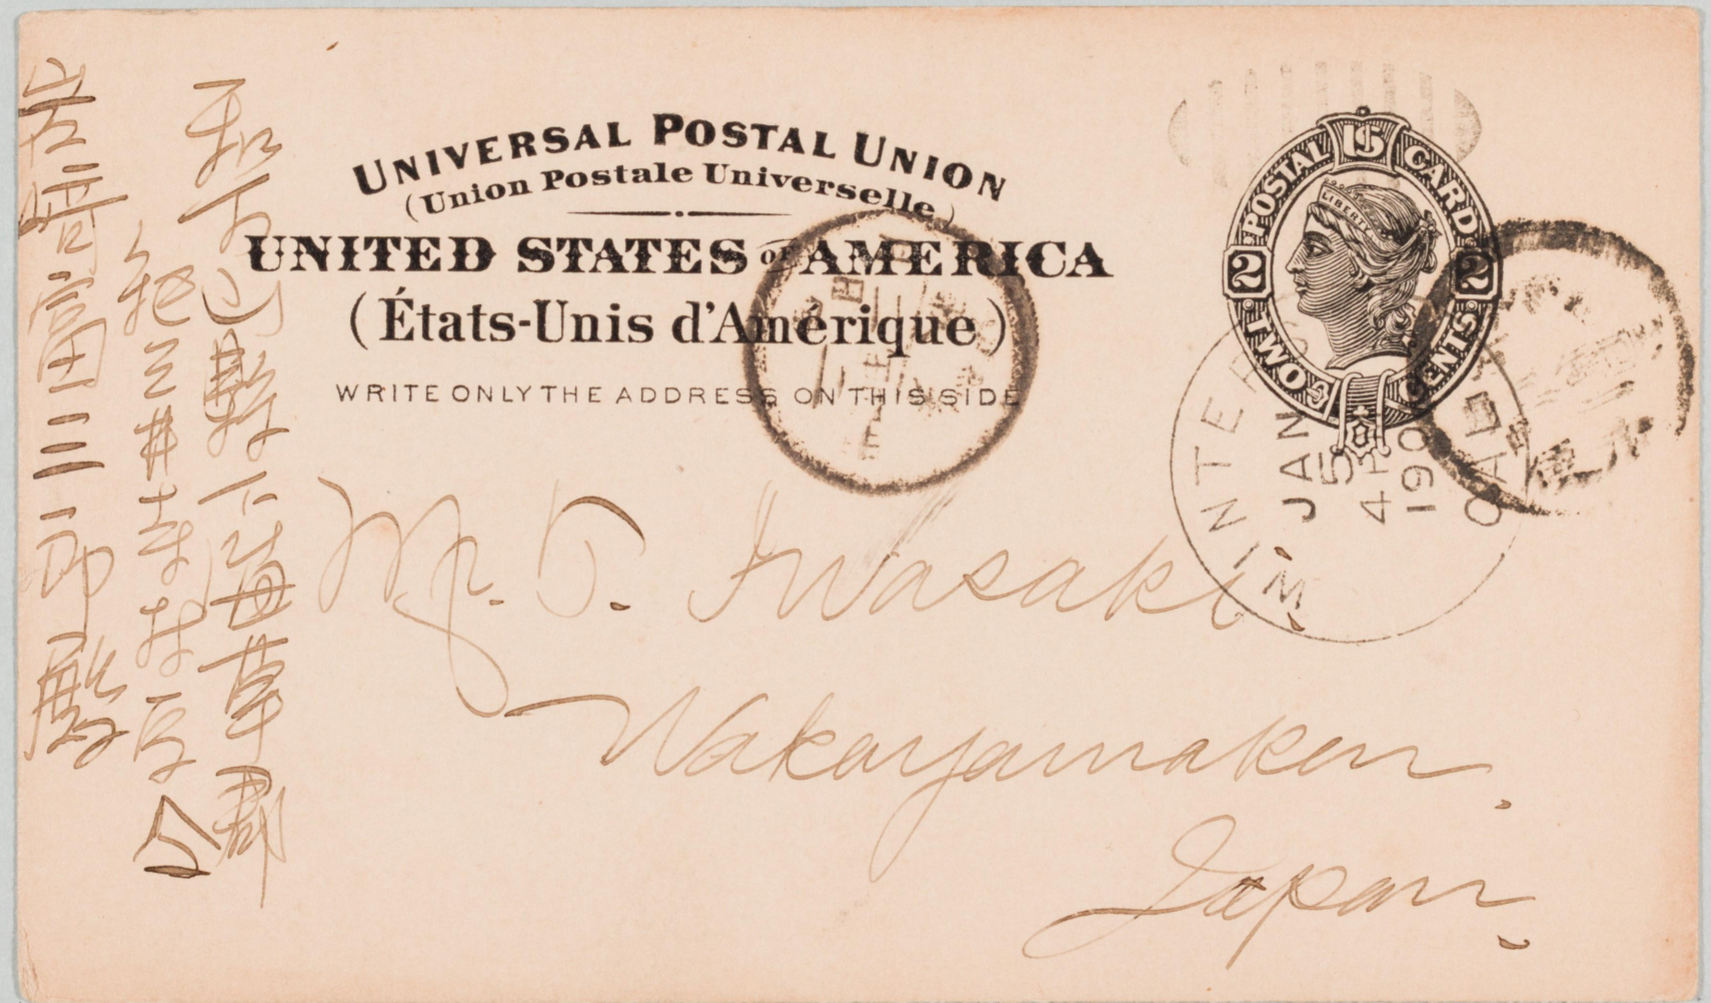 UNIVERSAL POSTAL UNION
(Union Postale Universelle)
UNITED STATES OF AMERICA
(États-Unis d'Amérique)
WRITE ONLY THE ADDRESS ON THIS SIDE
POSTAL CARD
U S
2 2
TWO CENTS
LIBERTY
WINTERS
JAN
5
4P
190
CAL
Mr. T. Iwasaki.
Wakayamaken.
Japan.
和歌山縣下海草郡
紀三井寺村
岩﨑富三郎殿